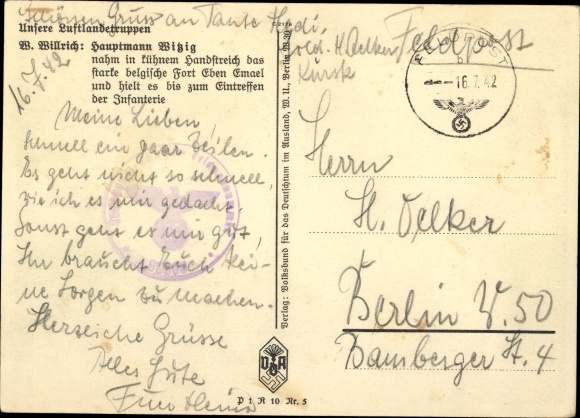 Schönen Gruss an Tante Hedi,
Unsere Luftlandetruppen
W. Willrich: Hauptmann Witzig
nahm in kühnem Handstreich das
starke belgische Fort Eben Emael
und hielt es bis zum Eintreffen
der Infanterie
16.7.42
Meine Lieben
schnell ein paar Zeilen.
Es geht nicht so schnell,
wie ich es mir gedacht,
Sonst geht es mir gut,
Ihr braucht Euch kei-
ne Sorgen zu machen.
Herzliche Grüsse
Alles Gute
Verlag: Volksbund für das Deutschtum im Ausland, W. U., Berlin W 30
VDA
P 1 R 10 Nr. 5
Sold. H. Oelker
Kursk
Feldpost
FELDPOST
b
16.7.42
Herrn
H. Oelker
Berlin W. 50
Bamberger St. 4